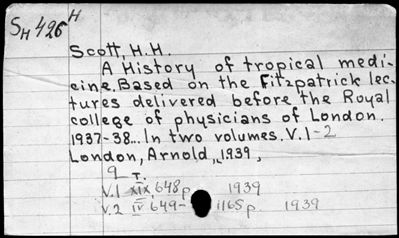 SH 426 H
Scott, H.H.
A History of tropical medi-
cine. Based on the Fitzpatrick lec-
tures delivered before the Royal
college of physicians of London.
1937-38... In two volumes. V.1-2
London, Arnold, 1939,
9 T.
V.1 XIX, 648p 1939
V.2 IV 649- 1165p. 1939